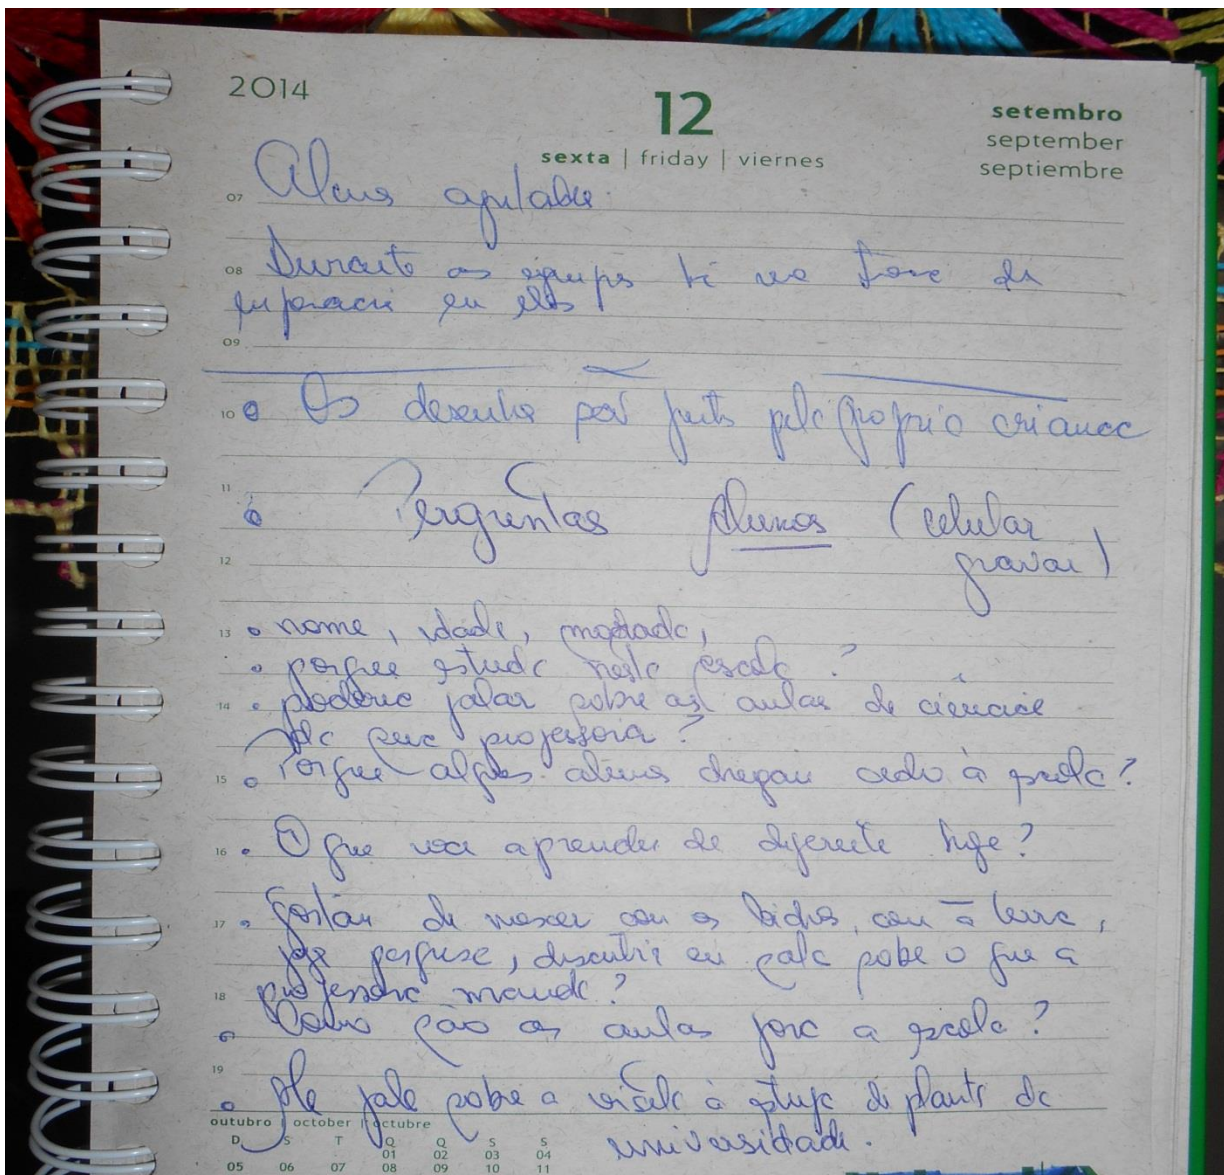 2014
12
setembro
september
septiembre
sexta | friday | viernes
07
08 Durante as
em
09
10 Os desenhos feitos própria criança
11 Perguntas Alunos (celular
12 gravar)
13 nome, idade,
porque estuda nesta escola?
14 poderia falar sobre as aulas de ciências
da sua professora?
15 Porque alguns alunos chegam cedo à escola?
16 O que você aprendeu de diferente hoje?
17 Gostam de mexer com os bichos, com a terra,
pesquisa, discutir em sala sobre o que a
18 professora manda?
Como são as aulas fora a escola?
19 Me fale sobre a visita à estufa de plantas da
universidade.
outubro | october | octubre
D S T Q Q S S
01 02 03 04
05 06 07 08 09 10 11